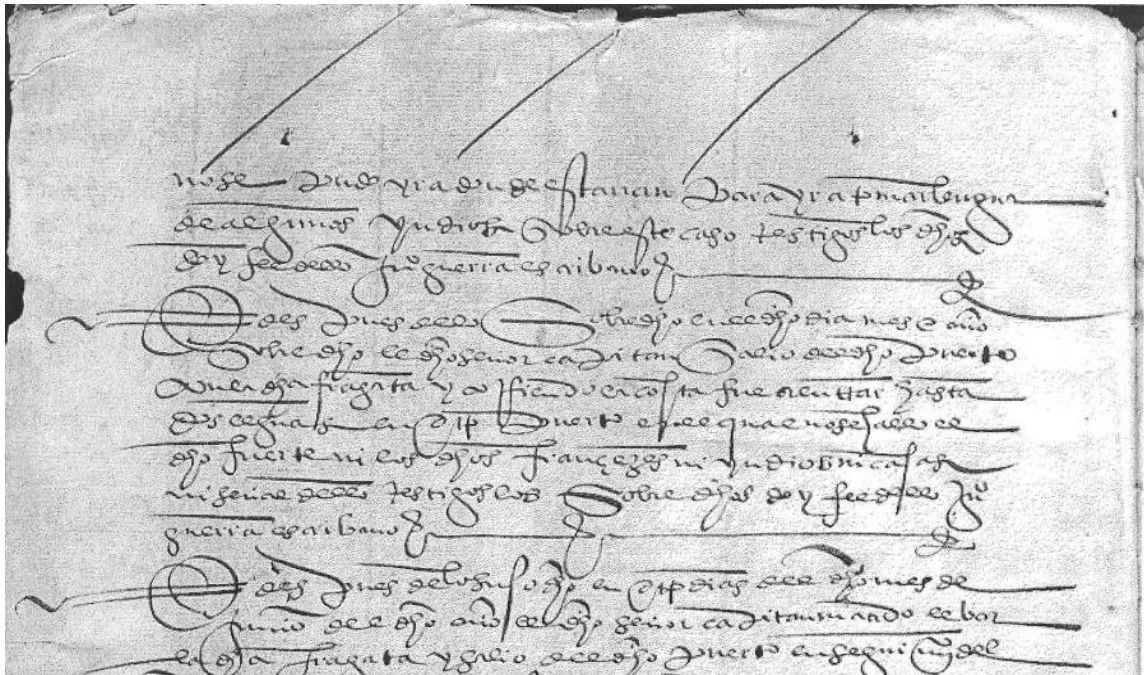 nose pudo yr adonde estauan para yr a tomar lengua
de algunos yndios sobre este caso testigos los dhos
doy fee dello juº guerra escriuano
despues de lo sobre dho en el dho dia mes e año
sobre dho el dho señor capitan salio del dho puerto
con la dha fragata y corriendo la costa fue a entrar hasta
dos leguas en otº puerto en el qual no se hallo el
dho fuerte ni los dhos françezes ni yndios ni casas
ni señal dello testigos los sobre dhos doy fee dello juº
guerra escriuano
despues de lo suso dho en dias del dho mes de
junio del dho año el dho señor capitan mando
la dha fragata y salio del dho puerto en seguimiº del